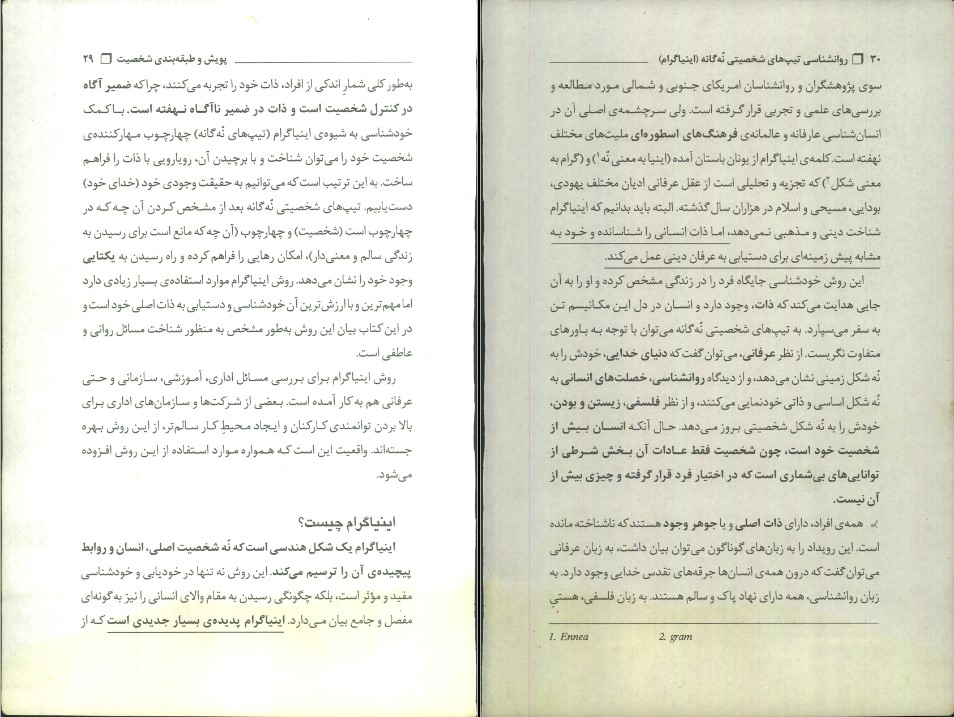 پویش و طبقه‌بندی شخصیت ❒ ۲۹
به‌طور کلی شمارِ اندکی از افراد، ذات خود را تجربه می‌کنند، چراکه ضمیر آگاه
در کنترل شخصیت است و ذات در ضمیر ناآگاه نهفته است. با کمک
خودشناسی به شیوه‌ی اینیاگرام (تیپ‌های نُه‌گانه) چهارچوب مهارکننده‌ی
شخصیت خود را می‌توان شناخت و با برچیدن آن، رویارویی با ذات را فراهم
ساخت. به این ترتیب است که می‌توانیم به حقیقت وجودی خود (خدای خود)
دست‌یابیم. تیپ‌های شخصیتی نُه‌گانه بعد از مشخص کردن آن چه که در
چهارچوب است (شخصیت) و چهارچوب (آن چه که مانع است برای رسیدن به
زندگی سالم و معنی‌دار)، امکان رهایی را فراهم کرده و راه رسیدن به یکتایی
وجود خود را نشان می‌دهد. روش اینیاگرام موارد استفاده‌ی بسیار زیادی دارد
اما مهم‌ترین و با ارزش‌ترین آن خودشناسی و دستیابی به ذات اصلی خود است و
در این کتاب بیان این روش به‌طور مشخص به منظور شناخت مسائل روانی و
عاطفی است.
روش اینیاگرام برای بررسی مسائل اداری، آموزشی، سازمانی و حتی
عرفانی هم به کار آمده است. بعضی از شرکت‌ها و سازمان‌های اداری برای
بالا بردن توانمندی کارکنان و ایجاد محیطِ کار سالم‌تر، از این روش بهره
جسته‌اند. واقعیت این است که همواره موارد استفاده از این روش افزوده
می‌شود.
اینیاگرام چیست؟
اینیاگرام یک شکل هندسی است که نُه شخصیت اصلی، انسان و روابط
پیچیده‌ی آن را ترسیم می‌کند. این روش نه تنها در خودیابی و خودشناسی
مفید و مؤثر است، بلکه چگونگی رسیدن به مقام والای انسانی را نیز به گونه‌ای
مفصل و جامع بیان می‌دارد. اینیاگرام پدیده‌ی بسیار جدیدی است که از
۳۰ ❒ روانشناسی تیپ‌های شخصیتی نُه‌گانه (اینیاگرام)
سوی پژوهشگران و روانشناسان امریکای جنوبی و شمالی مورد مطالعه و
بررسی‌های علمی و تجربی قرار گرفته است. ولی سرچشمه‌ی اصلی آن در
انسان‌شناسی عارفانه و عالمانه‌ی فرهنگ‌های اسطوره‌ای ملیت‌های مختلف
نهفته است. کلمه‌ی اینیاگرام از یونان باستان آمده (اینیا به معنی نُه۱) و (گرام به
معنی شکل۲) که تجزیه و تحلیلی است از عقل عرفانی ادیان مختلف یهودی،
بودایی، مسیحی و اسلام در هزاران سال گذشته. البته باید بدانیم که اینیاگرام
شناخت دینی و مذهبی نمی‌دهد، اما ذات انسانی را شناسانده و خود به
مشابه پیش زمینه‌ای برای دستیابی به عرفان دینی عمل می‌کند.
این روش خودشناسی جایگاه فرد را در زندگی مشخص کرده و او را به آن
جایی هدایت می‌کند که ذات، وجود دارد و انسان در دل این مکانیسم تن
به سفر می‌سپارد. به تیپ‌های شخصیتی نُه‌گانه می‌توان با توجه به باورهای
متفاوت نگریست. از نظر عرفانی، می‌توان گفت که دنیای خدایی، خودش را به
نُه شکل زمینی نشان می‌دهد، و از دیدگاه روانشناسی، خصلت‌های انسانی به
نُه شکل اساسی و ذاتی خودنمایی می‌کنند، و از نظر فلسفی، زیستن و بودن،
خودش را به نُه شکل شخصیتی بروز می‌دهد. حال آنکه انسان بیش از
شخصیت خود است، چون شخصیت فقط عادات آن بخش شرطی از
توانایی‌های بی‌شماری است که در اختیار فرد قرار گرفته و چیزی بیش از
آن نیست.
همه‌ی افراد، دارای ذات اصلی و یا جوهر وجود هستند که ناشناخته مانده
است. این رویداد را به زبان‌های گوناگون می‌توان بیان داشت، به زبان عرفانی
می‌توان گفت که درون همه‌ی انسان‌ها جرقه‌های تقدس خدایی وجود دارد. به
زبان روانشناسی، همه دارای نهاد پاک و سالم هستند. به زبان فلسفی، هستیِ
1. Ennea 2. gram